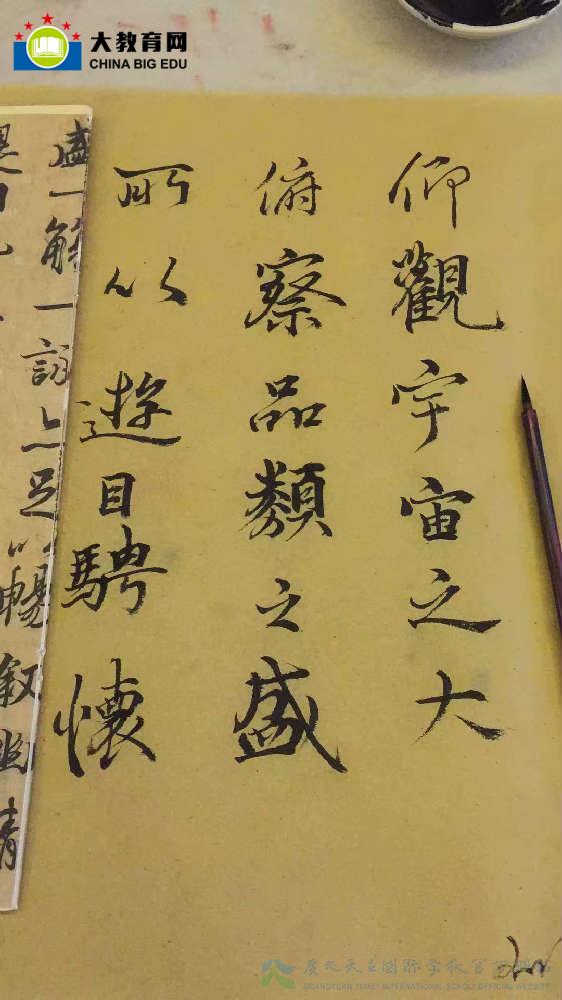 大教育网
CHINA BIG EDU
仰觀宇宙之大
俯察品類之盛
所以遊目騁懷
盛一觴一詠亦足以暢敘幽情
广元天立国际学校官方网站
GUANGYUAN TIANLI INTERNATIONAL SCHOOL OFFICIAL WEBSITE